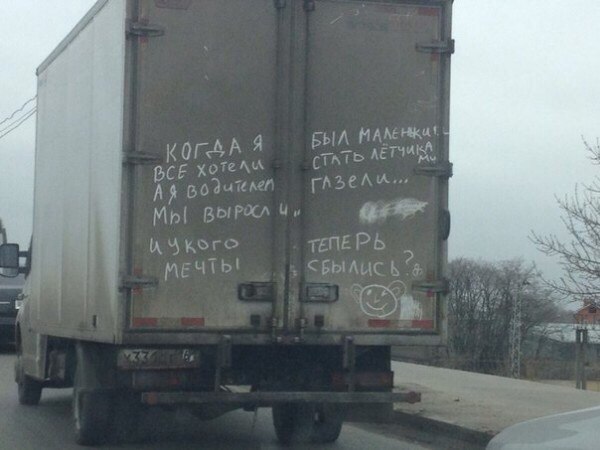 КОГДА Я БЫЛ МАЛЕНЬКИ..
ВСЕ ХОТЕЛИ СТАТЬ ЛЁТЧИКАМИ
А Я ВОДИТЕЛЕМ ГАЗЕЛИ...
МЫ ВЫРОСЛИ..
И У КОГО ТЕПЕРЬ
МЕЧТЫ СБЫЛИСЬ?